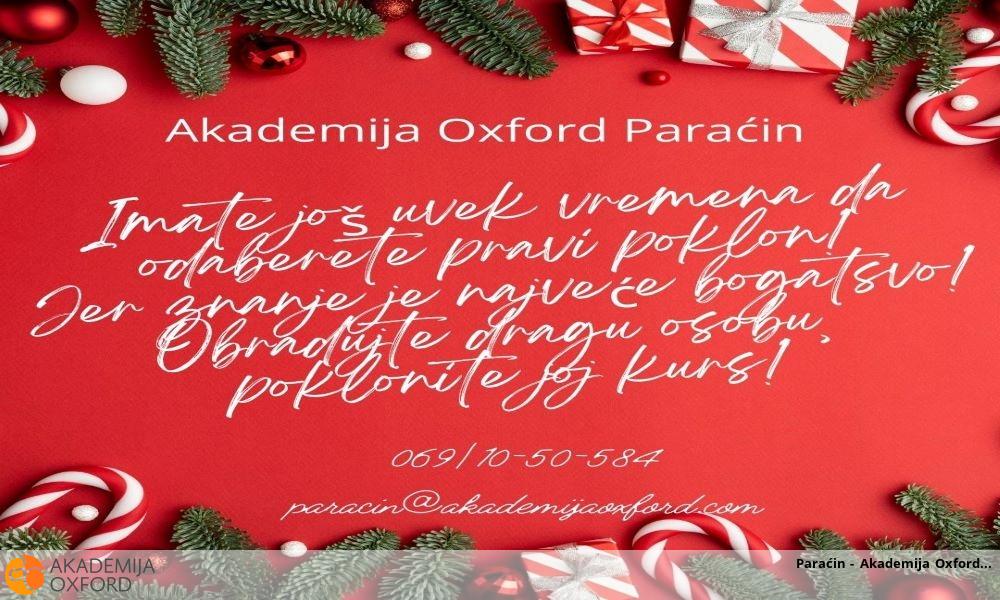 Akademija Oxford Paraćin
Imate još uvek vremena da
odaberete pravi poklon!
Jer znanje je najveće bogatsvo!
Obradujte dragu osobu,
poklonite joj kurs!
069/10-50-584
paracin@akademijaoxford.com
AKADEMIJA
OXFORD
Paraćin - Akademija Oxford...